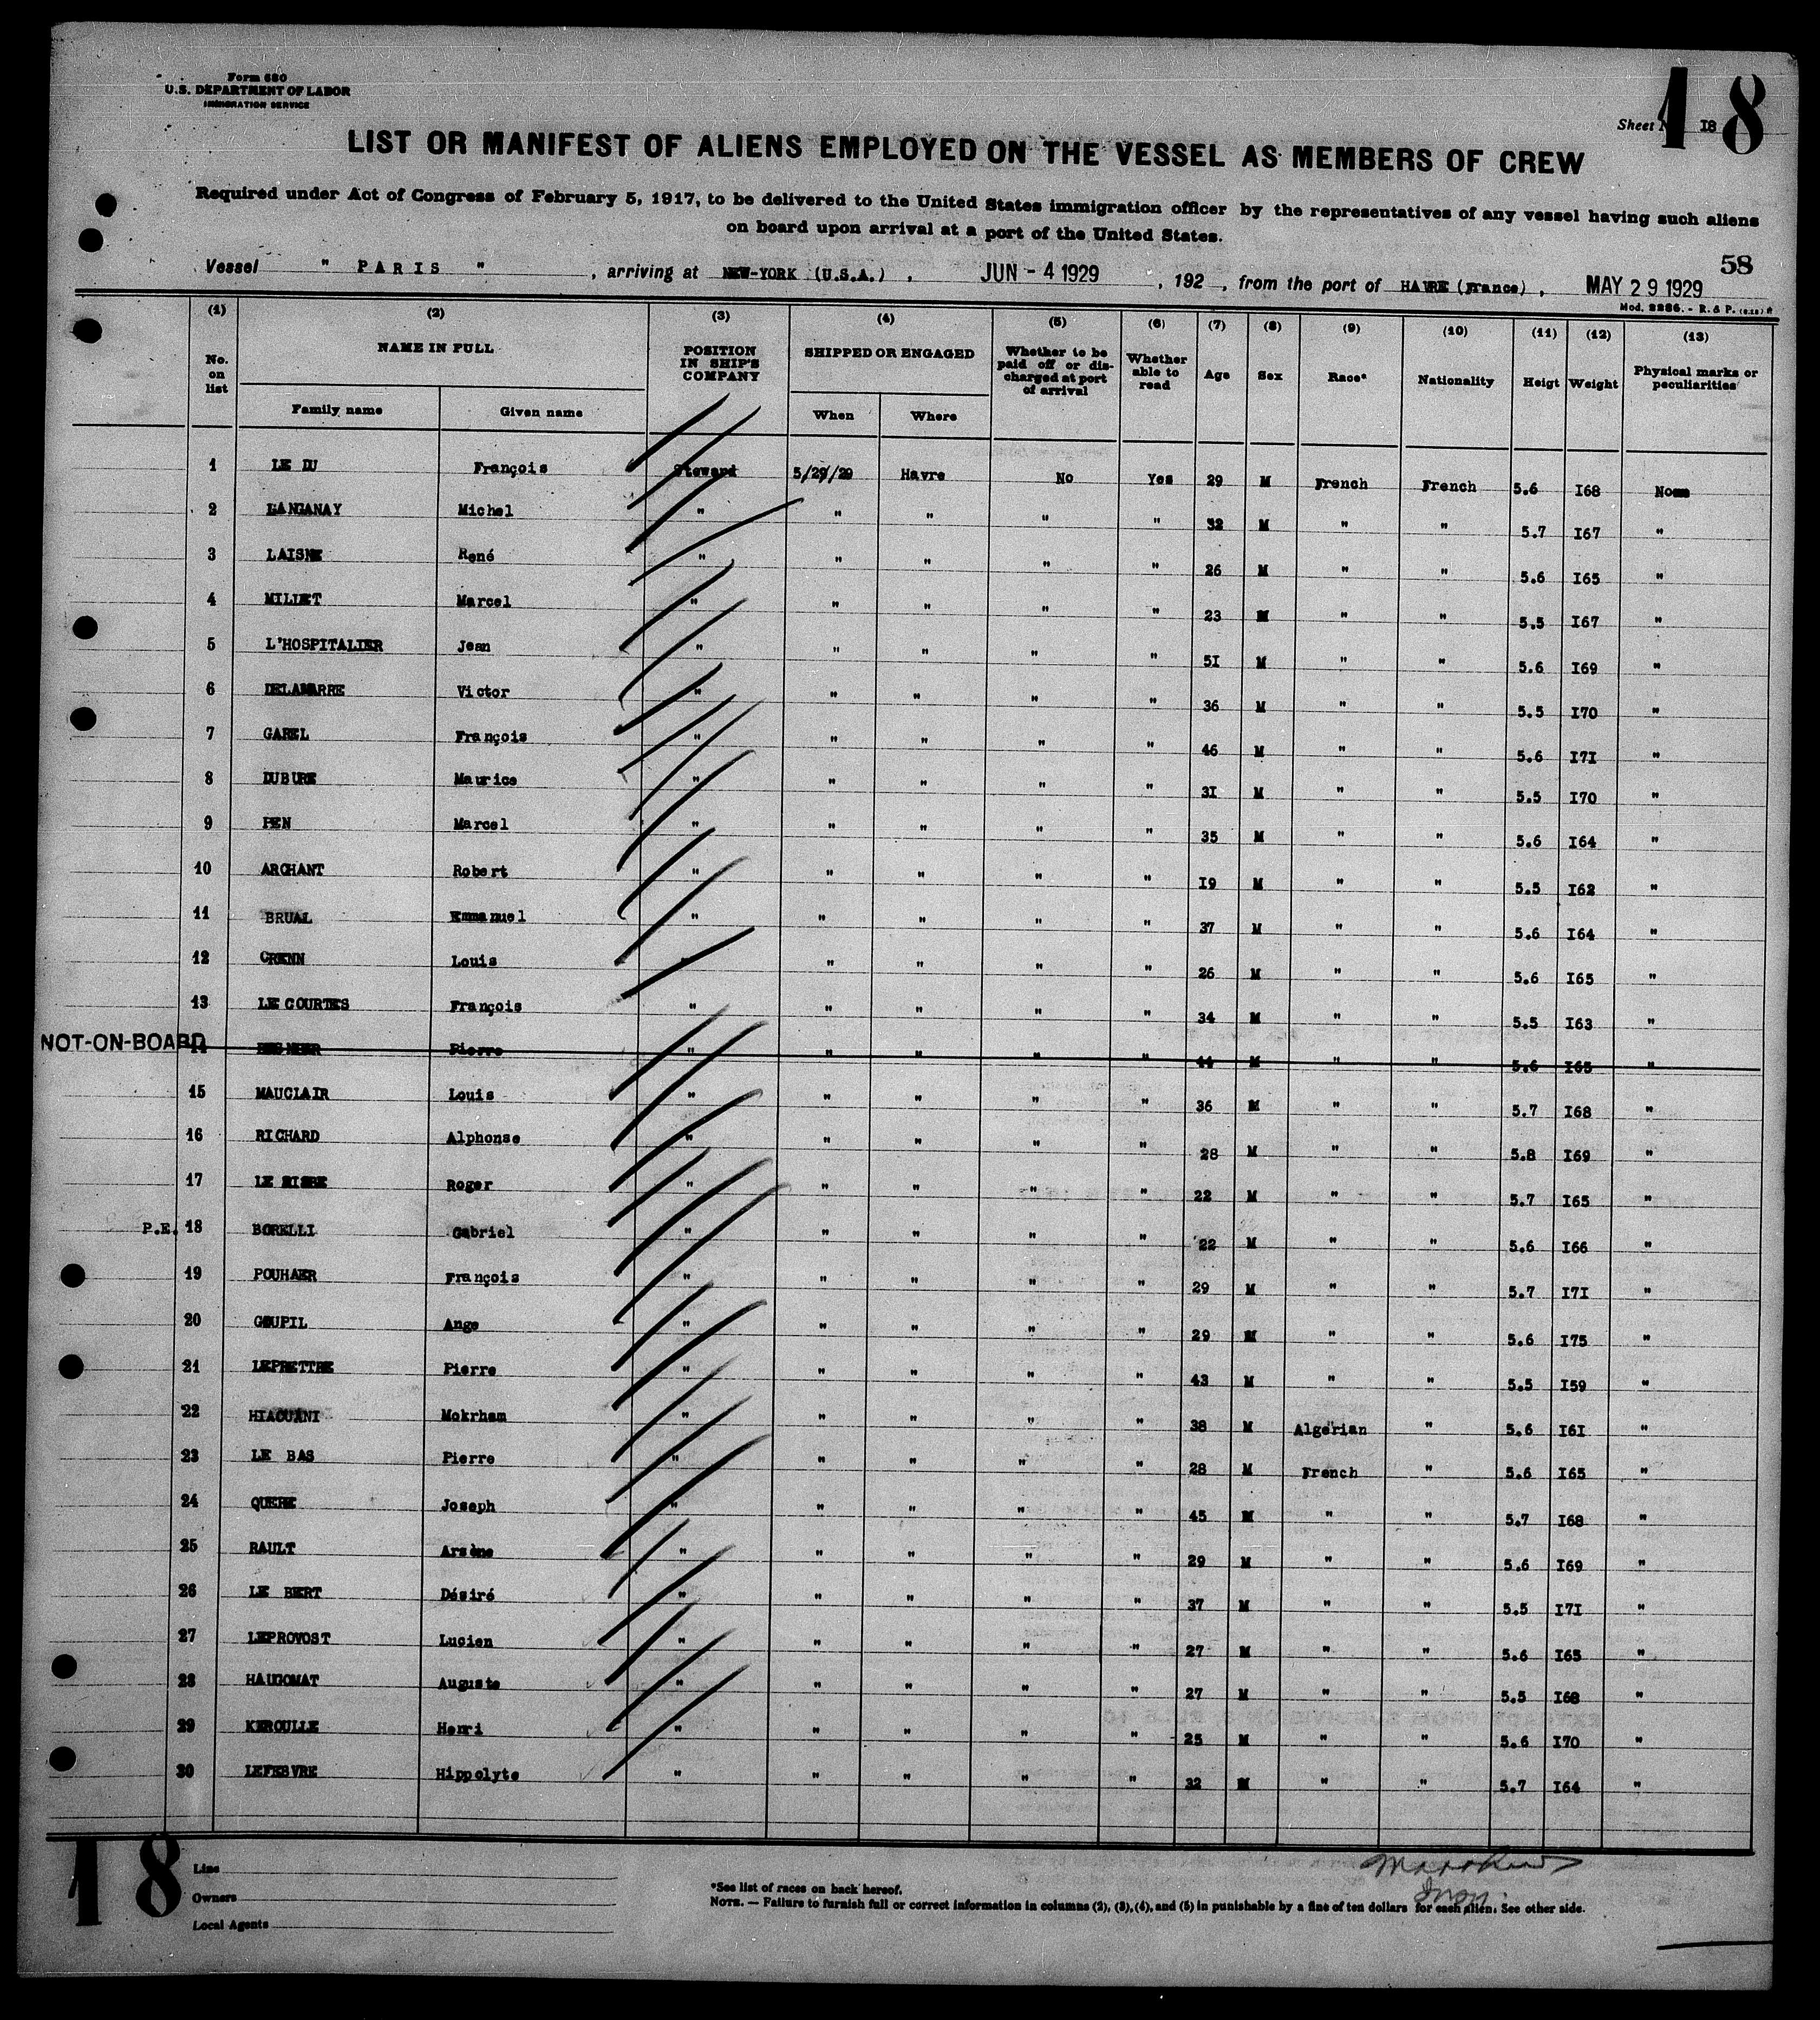 Form 680
U.S. DEPARTMENT OF LABOR
IMMIGRATION SERVICE
Sheet I8
18
LIST OR MANIFEST OF ALIENS EMPLOYED ON THE VESSEL AS MEMBERS OF CREW
Required under Act of Congress of February 5, 1917, to be delivered to the United States immigration officer by the representatives of any vessel having such aliens
on board upon arrival at a port of the United States.
58
Vessel " PARIS " , arriving at NEW-YORK (U.S.A.) , JUN - 4 1929 , 192 , from the port of HAVRE (France) , MAY 29 1929
Mod. 2286. - R. & P.
(1) (2) (3) (4) (5) (6) (7) (8) (9) (10) (11) (12) (13)
No. on list NAME IN FULL POSITION IN SHIP'S COMPANY SHIPPED OR ENGAGED Whether to be paid off or discharged at port of arrival Whether able to read Age Sex Race* Nationality Heigt Weight Physical marks or peculiarities
Family name Given name When Where
1 LE DU François Steward 5/29/29 Havre No Yes 29 M French French 5.6 I68 None
2 LANGANAY Michel " " " " " 32 M " " 5.7 I67 "
3 LAISNE René " " " " " 26 M " " 5.6 I65 "
4 MILLET Marcel " " " " " 23 M " " 5.5 I67 "
5 L'HOSPITALIER Jean " " " " " 5I M " " 5.6 I69 "
6 DELAMARRE Victor " " " " " 36 M " " 5.5 I70 "
7 GAREL François " " " " " 46 M " " 5.6 I7I "
8 DUBURE Maurice " " " " " 3I M " " 5.5 I70 "
9 PEN Marcel " " " " " 35 M " " 5.6 I64 "
10 ARCHANT Robert " " " " " I9 M " " 5.5 I62 "
11 BRUAL Emmanuel " " " " " 37 M " " 5.6 I64 "
12 CRENN Louis " " " " " 26 M " " 5.6 I65 "
13 LE COURTES François " " " " " 34 M " " 5.5 I63 "
NOT-ON-BOARD 14 Pierre " " " " " 44 M " " 5.6 I65 "
15 MAUCLAIR Louis " " " " " 36 M " " 5.7 I68 "
16 RICHARD Alphonse " " " " " 28 M " " 5.8 I69 "
17 LE Roger " " " " " 22 M " " 5.7 I65 "
P.E. 18 BORELLI Gabriel " " " " " 22 M " " 5.6 I66 "
19 POUHAER François " " " " " 29 M " " 5.7 I7I "
20 GOUPIL Ange " " " " " 29 M " " 5.6 I75 "
21 LEPRETTRE Pierre " " " " " 43 M " " 5.5 I59 "
22 HIAOUANI Mokrham " " " " " 38 M Algerian " 5.6 I6I "
23 LE BAS Pierre " " " " " 28 M French " 5.6 I65 "
24 QUERE Joseph " " " " " 45 M " " 5.7 I68 "
25 RAULT Arsène " " " " " 29 M " " 5.6 I69 "
26 LE BERT Désiré " " " " " 37 M " " 5.5 I7I "
27 LEPROVOST Lucien " " " " " 27 M " " 5.6 I65 "
28 HAUGOMAT Auguste " " " " " 27 M " " 5.5 I68 "
29 KEROULLE Henri " " " " " 25 M " " 5.6 I70 "
30 LEFEBVRE Hippolyte " " " " " 32 M " " 5.7 I64 "
18
Line
Owners
Local Agents
*See list of races on back hereof.
NOTE. — Failure to furnish full or correct information in columns (2), (3), (4), and (5) in punishable by a fine of ten dollars for each alien. See other side.